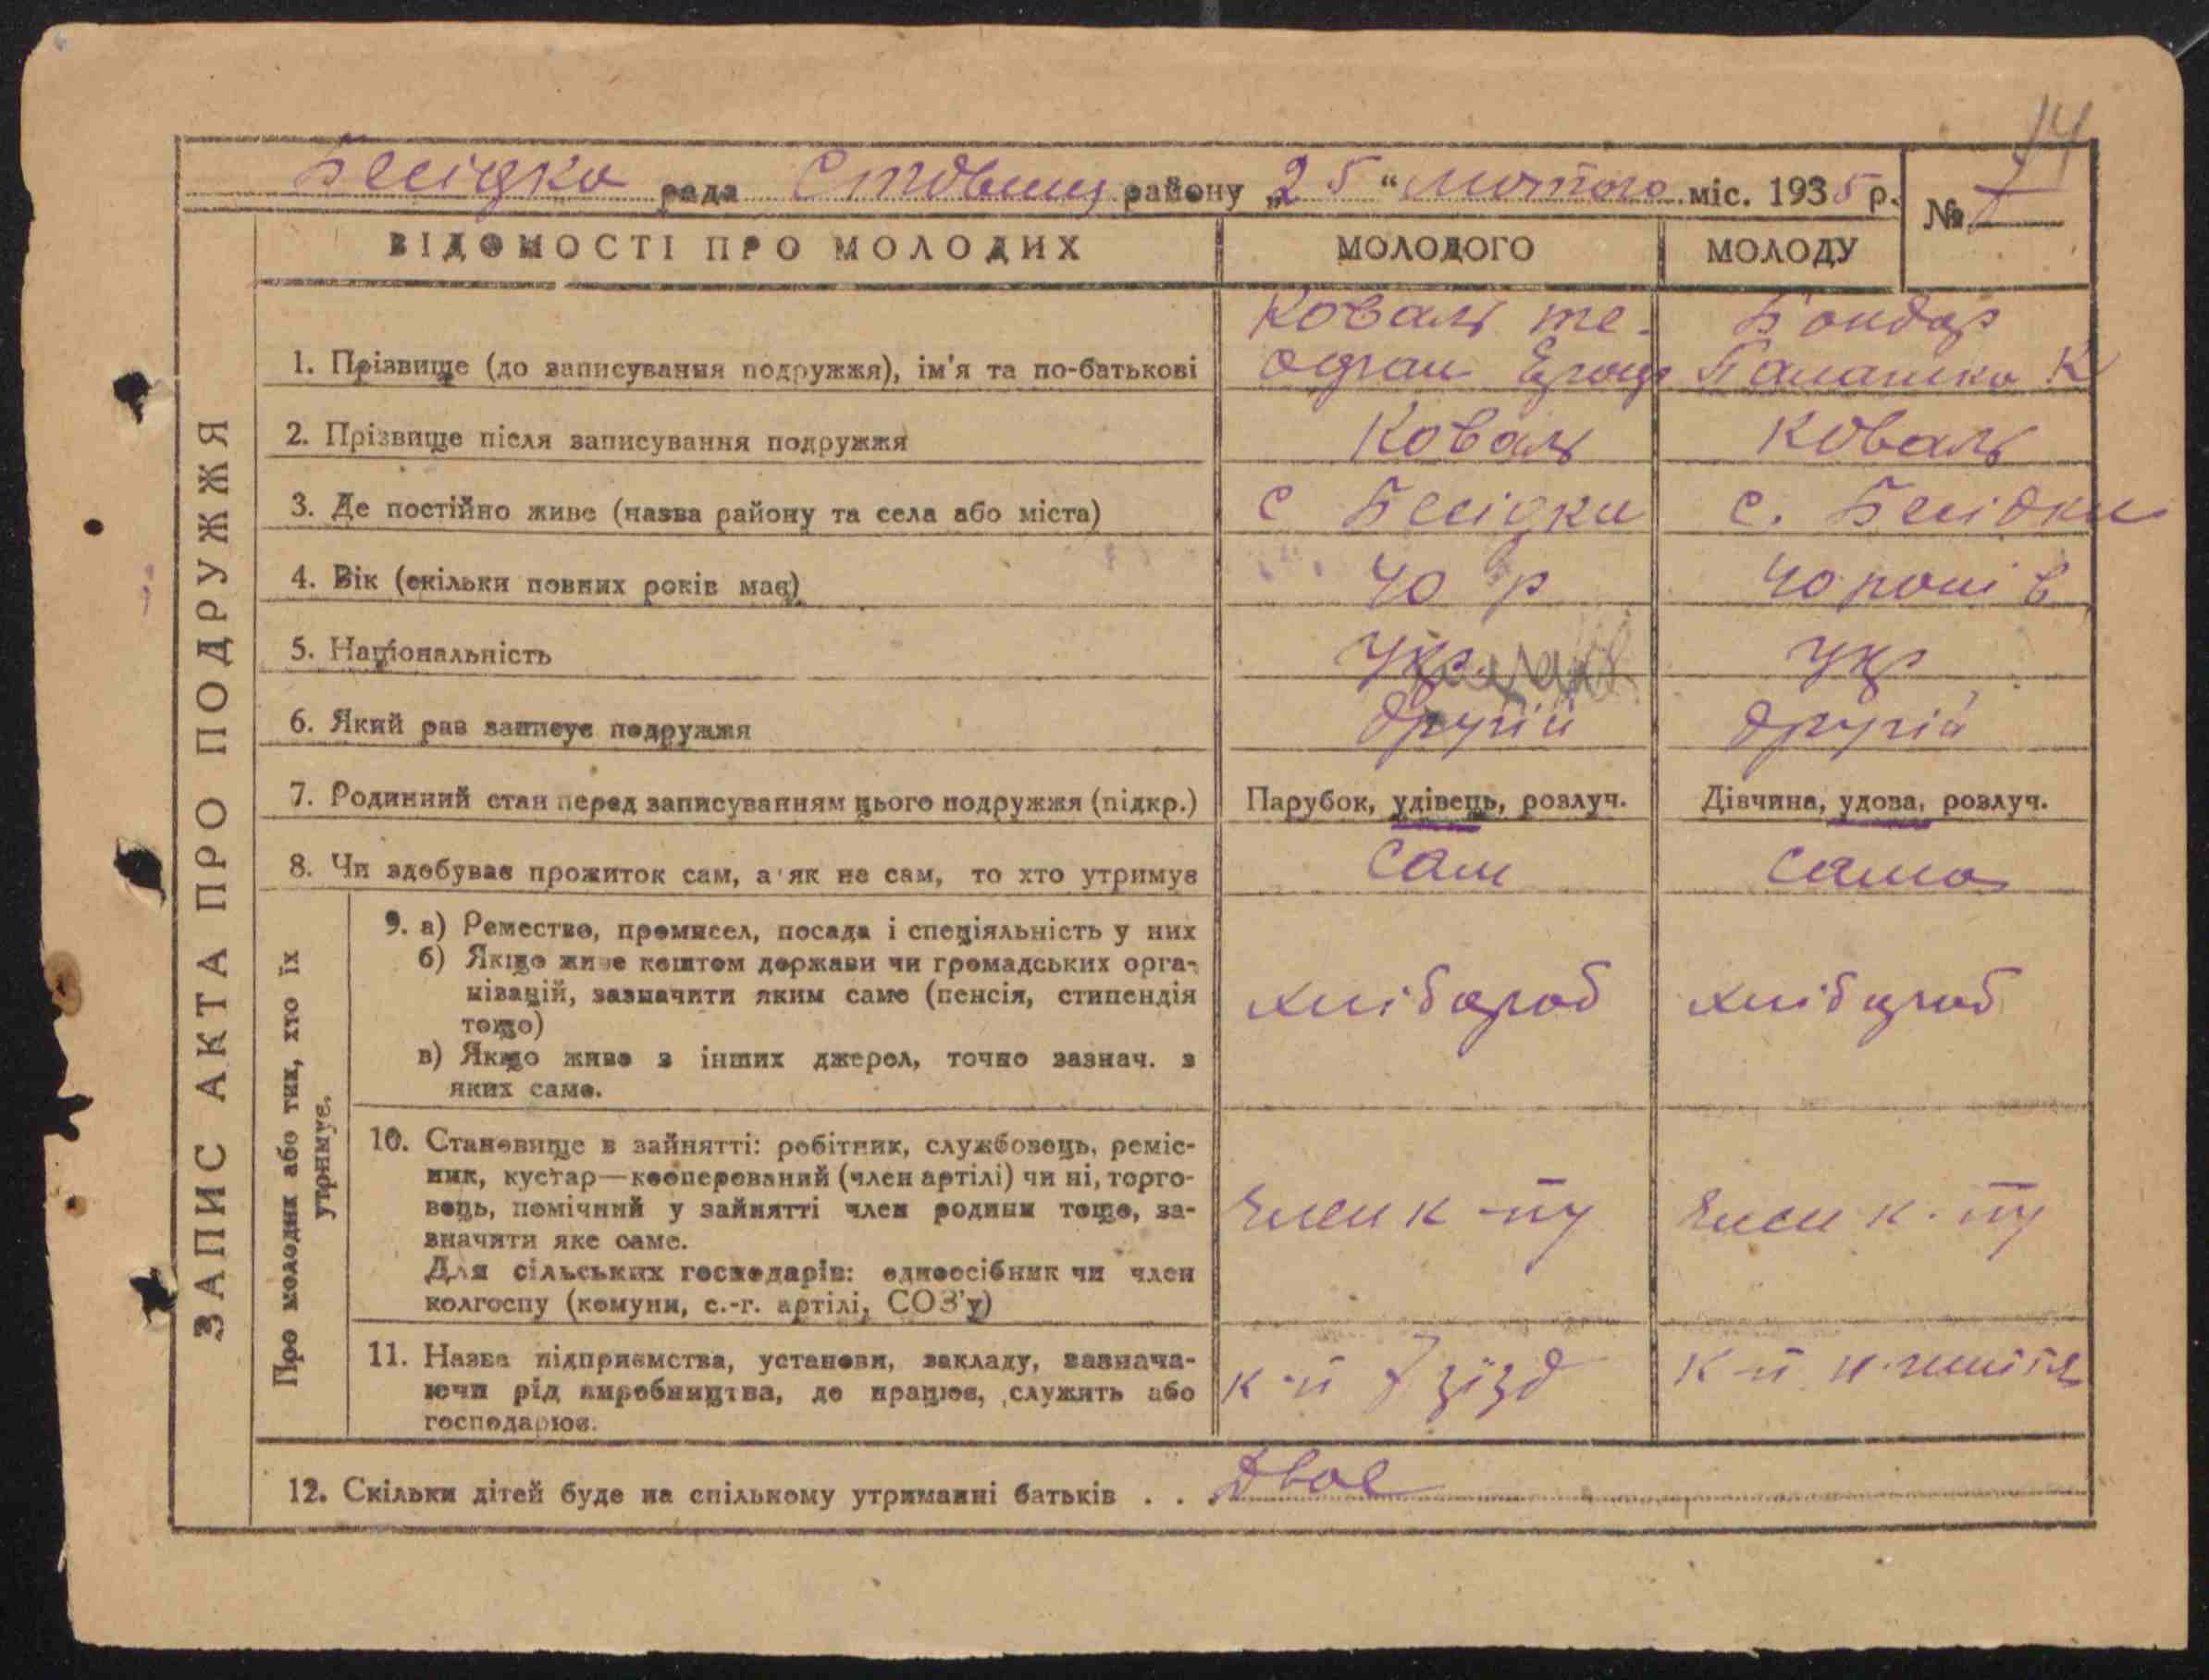 Бесідка рада Ставищ району „25“ лютого міс. 1935 р.
14
№ 7
ВІДОМОСТІ ПРО МОЛОДИХ
МОЛОДОГО
МОЛОДУ
ЗАПИС АКТА ПРО ПОДРУЖЖЯ
1. Прізвище (до записування подружжя), ім'я та по-батькові
Коваль Те-
Бондар
Палашка К
2. Прізвище після записування подружжя
Коваль
Коваль
3. Де постійно живе (назва району та села або міста)
с Бесідки
с. Бесідки
4. Вік (скільки повних років має)
40 р
40 років
5. Національність
Укр.
Укр
6. Який раз записує подружжя
другій
другій
7. Родинний стан перед записуванням цього подружжя (підкр.)
Парубок, удівець, розлуч.
Дівчина, удова, розлуч.
8. Чи здобуває прожиток сам, а як не сам, то хто утримує
Сам
Сама
Про молодих або тих, хто їх
утримує.
9. а) Ремество, промисел, посада і спеціяльність у них
б) Якщо живе коштом держави чи громадських орга-
нізацій, зазначити яким саме (пенсія, стипендія
тощо)
в) Якщо живе з інших джерел, точно зазнач. з
яких саме.
хлібороб
хлібороб
10. Становище в зайнятті: робітник, службовець, реміс-
ник, кустар—кооперований (член артілі) чи ні, торго-
вець, помічний у зайнятті член родини тощо, за-
значити яке саме.
Для сільських господарів: одноосібник чи член
колгоспу (комуни, с.-г. артілі, СОЗ'у)
член к-пу
член к-пу
11. Назва підприємства, установи, закладу, зазнача-
ючи рід виробництва, де працює, служить або
господарює.
к-п 7 зїзд
к-п
12. Скільки дітей буде на спільному утриманні батьків . .
Двоє